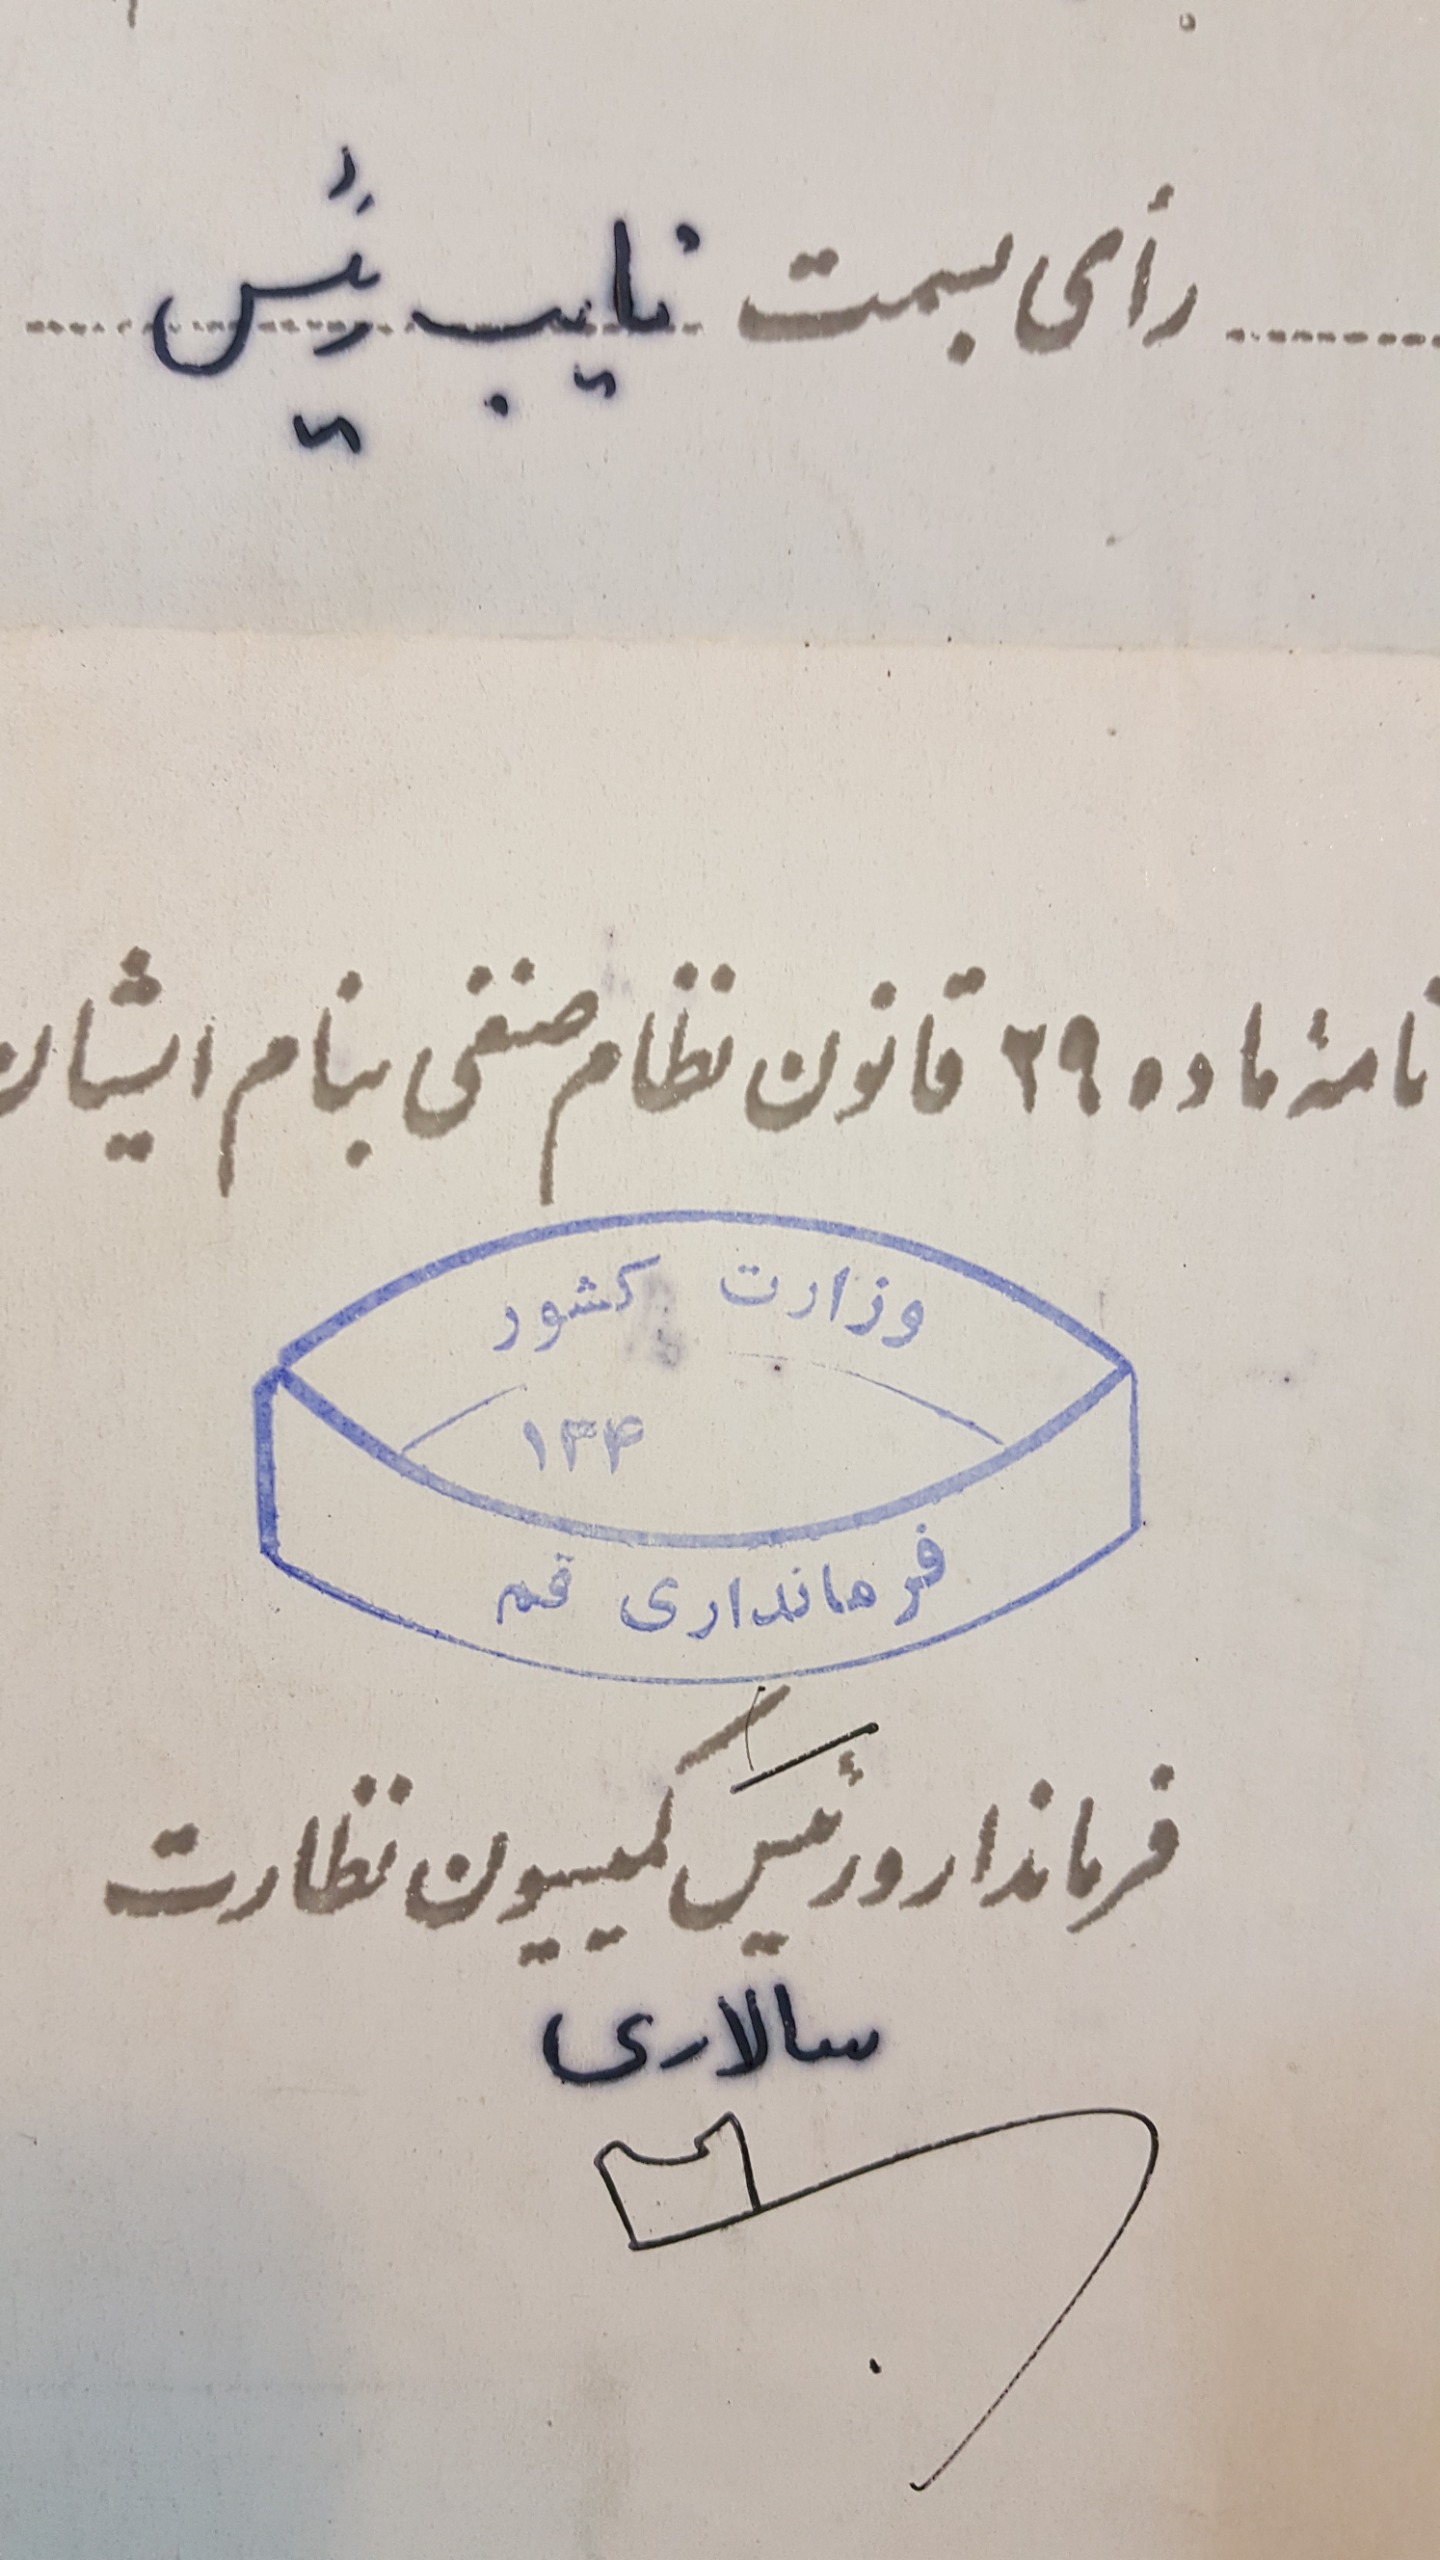 رأی بسمت نایب رئیس
نامهٔ ماده ۲۹ قانون نظام صنفی بنام ایشان
وزارت کشور
۱۳۴
فرمانداری قم
فرماندار و رئیس کمیسیون نظارت
سالاری